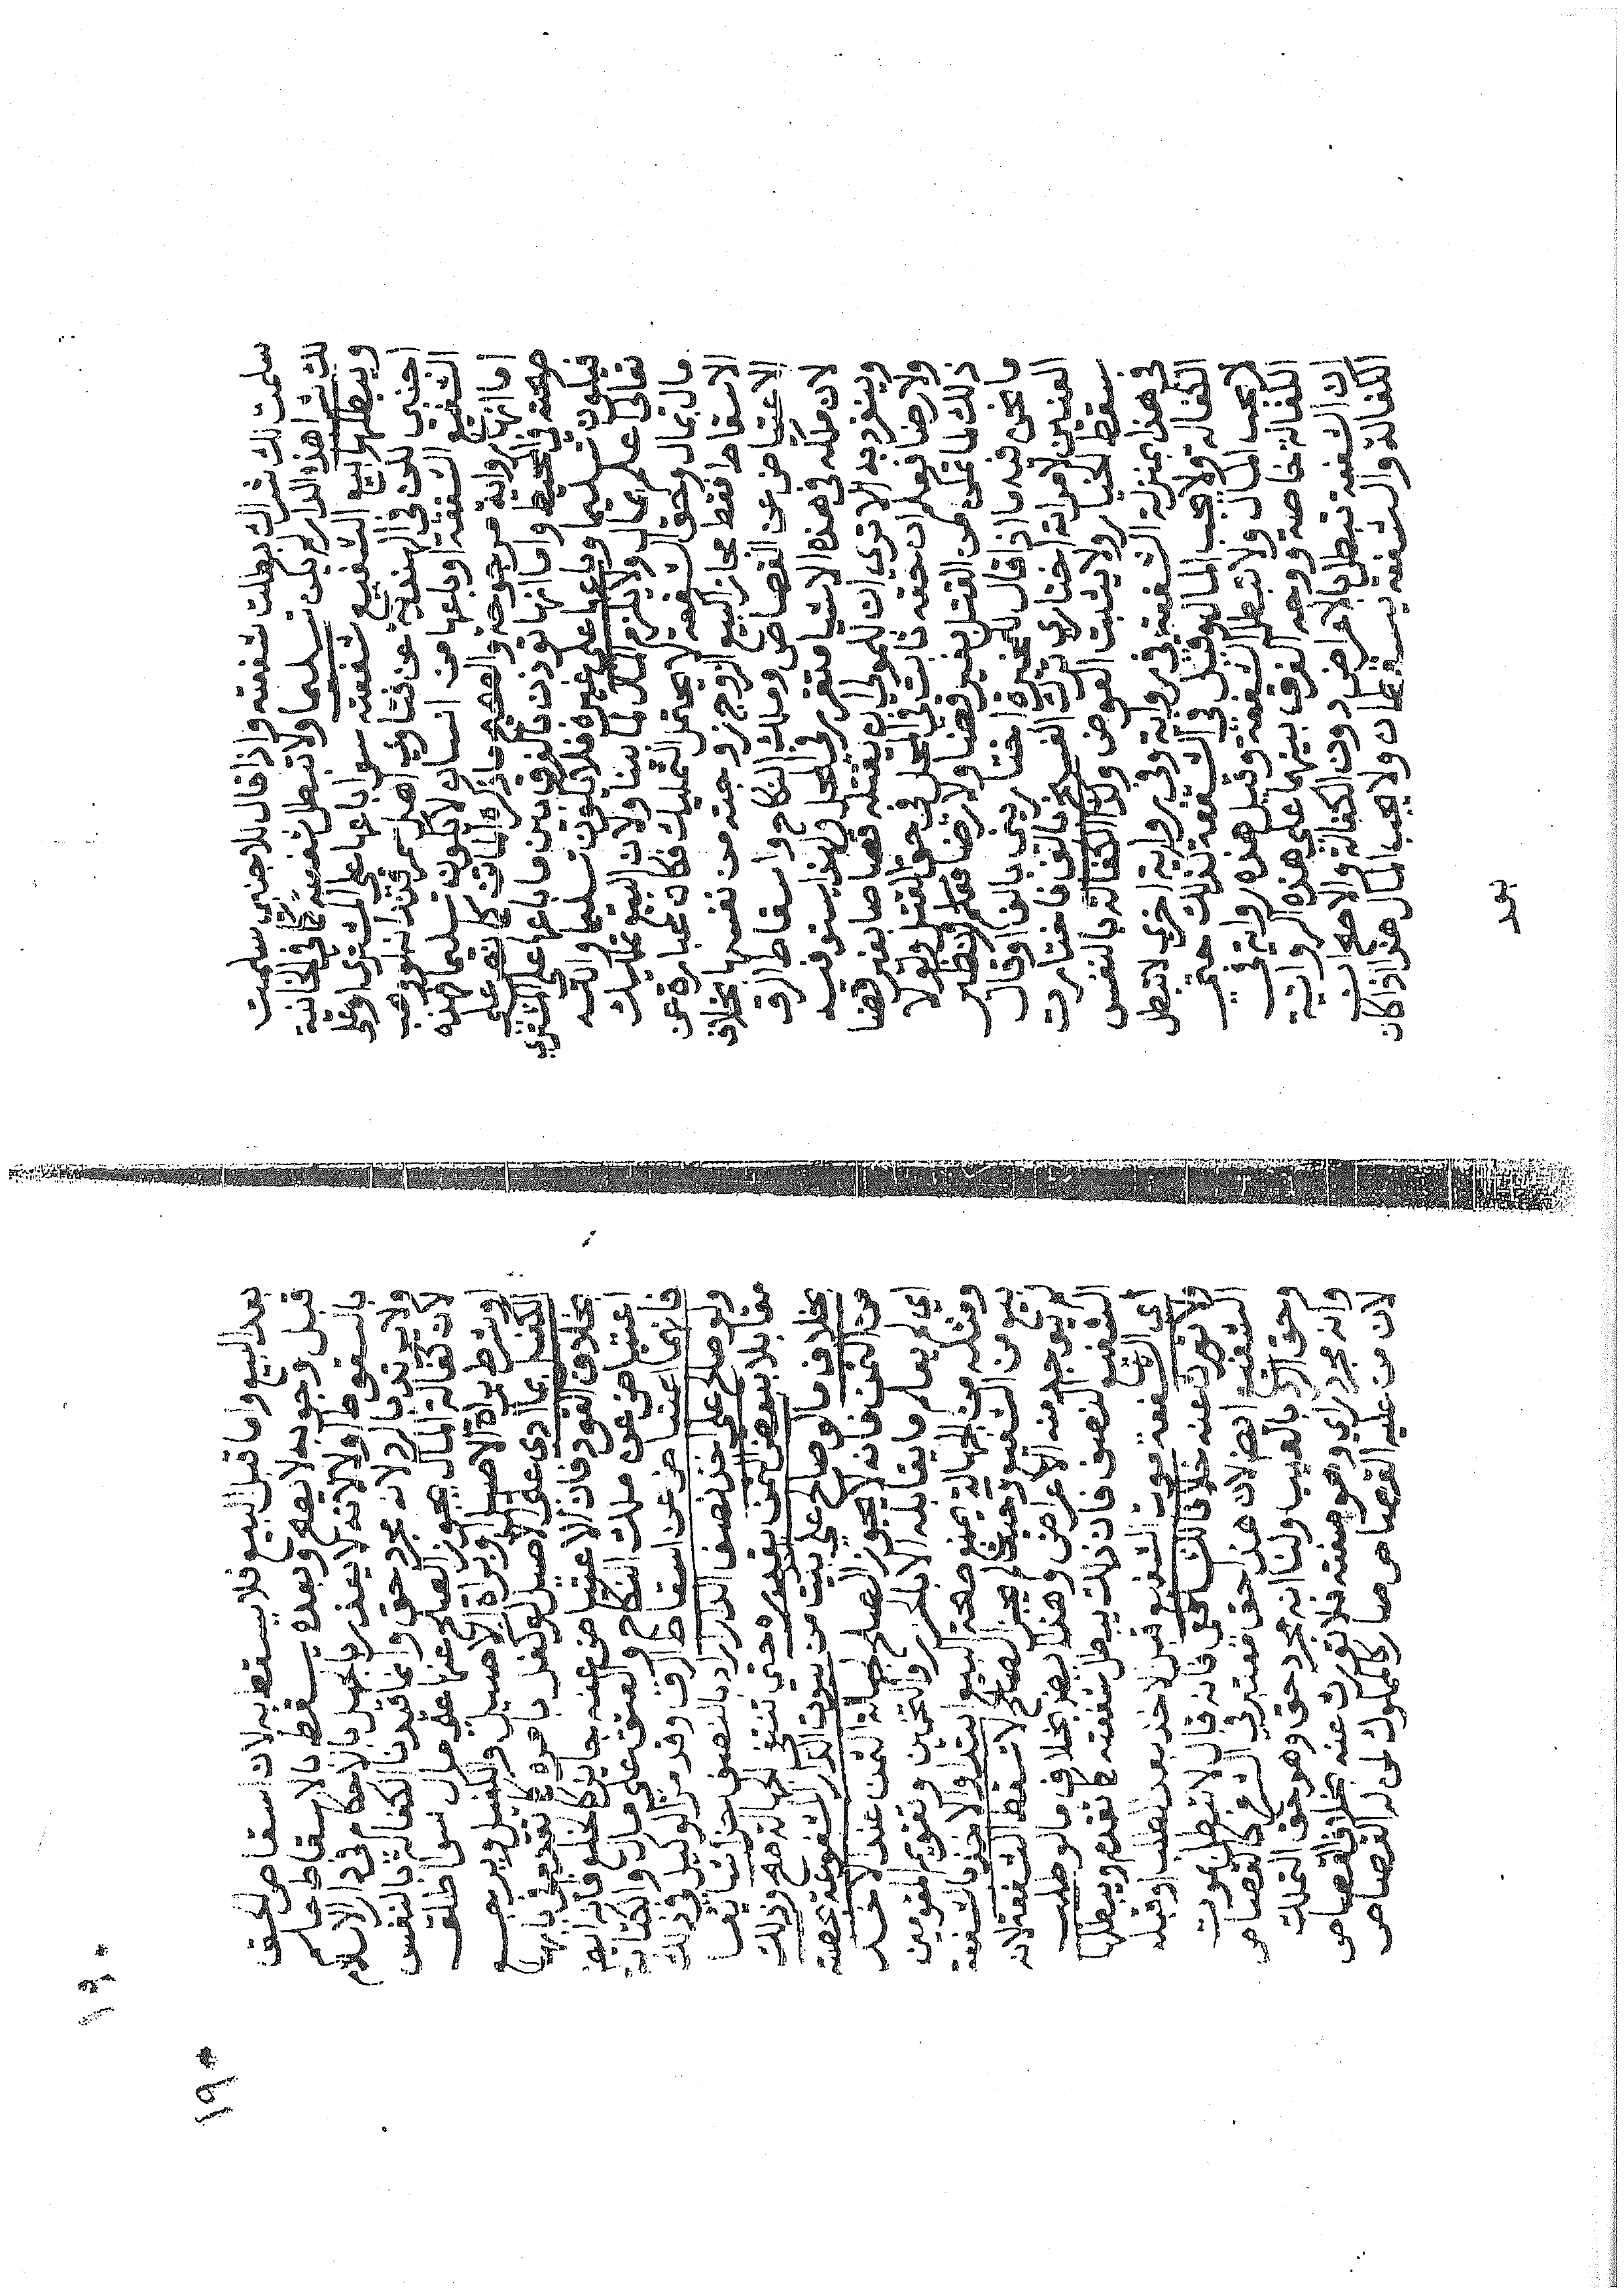 سلمت لك شراك بطلت شفعته واذا قال للاجنبي سلمت
لك شرا هذه الدار لم يكن تسليما ولا تبطل شفعته كذا في الخانية
ويبطلها بيع الشفيع شفعته سوا باعها على المشتري او على
اجنبي لكن في الهندية عن فتاوى اهل سمرقند انه لو وهب
الشفيع الشفعة او باعها من انسان لا يكون تسليما هذه
اما انها رواية مرجوحة والصحيح ما ذكره الماتن كما نص على
صحته في المحيط واما انها تؤذن بالفرق بين ما باعها على المشتري
فيكون تسليما وباعها على غيره فلا يكون تسليما والله
تعالى اعلم بمال ولا يلزم المال لما بينا ولان البيع تمليك
مال بمال وحق الشفعة لا يحتمل التمليك فكان عبارة عن
الاسقاط فقط مجاز البيع الزوج زوجته من نفسها بخلاف
الاعتياض عن القصاص وملك النكاح واسقاط الرق
لان ملكه في هذه الاشيا متقرر في المحل ولهذا يستوفيه
وينفرد به الا ترى ان للمولى ان يقتله قصاصا بغير قضا
ولا رضا فعلم ان حقه ثابت في المحل في حق القتل ولولا
ذلك لما تمكن من القتل بغير قضا ولا رضا فعلم ونظير
ما نحن فيه ما اذا قال للمخيرة اختاريني بالف او قال
العنين لامراته اختاري ترك الفسخ بالف فاختارت
سقط الخيار ولا يثبت العوض وكذا الكفالة بالنفس
في هذا بمنزلة الشفعة في رواية وفي رواية اخرى لا تبطل
الكفالة ولا يجب المال وقيل في الشفعة كذلك حتى
لا يجب المال ولا تبطل الشفعة وقيل هذه رواية في
الكفالة خاصة ووجه الفرق بينهما على هذه الرواية
ان الشفعة تبطل بالاعراض دون الكفالة والاصح ان
الكفالة والشفعة يسقطان ولا يجب المال هذا اذا كان
بعد
١٩٠
١٩٠
بعد البيع واما قبل البيع فلا يسقط به لان اسقاط الحق
قبل وجوبه لا يصح وبعده يسقط بالاسقاط علم
بالسقوط او لا لانه لا يعذر بالجهل بالاحكام في دار الاسلام
ولا يرتد بالرد لانه مجرد حق وانما قيدنا الكفالة بالنفس
لان كفالة المال يجوز الصلح عنها على مال سوا اطلق
او شرط براة الاصيل او براة الاصيل والكفيل ويرجع
الكفيل بما ادى على الاصيل لو كفل بامره كما تقدم في بابها
بخلاف القود فان الاعتياض عنه جايز كالخلع فانه ايضا
اعتياض عن ملك النكاح والعتق على مال والكتابة
فانهما اعتياض عن اسقاط الرق وقد مر الوكيل في ذلك
ولو صلح على اخذ نصف الدار اراد بالنصف جزا شايعا
مقابلا ببعض الثمن بقدره حتى تنتفي الجهالة صح وذلك
بخلاف ما لو صالح على بيت من بيوت الدار المشفوعة بحصته
من الثمن فانه لا يجوز الصلح جهالة الثمن عند الاخذ
اي لم يعلم ما يقابله الا بالحزر والتخمين وتقويم المقومين
ومثله من الجهالة يمنع صحة البيع ابتدا والاخذ بالشفعة
بيع من الشفيع وحيث لم يجز الصلح لا تسقط الشفعة لانه
لم يوجد منه الاعراض وهذا ايضا بخلاف ما لو طلب
الشفيع النصف فان ذلك يبطل شفعته كما تقدم ويبطلها
اي الشفعة موت الشفيع قبل الاخذ بعد الطلب او قبله
ولا تورث عنه خلافا للشافعي فانه قال لا تبطل بموت
الشفيع ايضا لان هذا حق معتبر في الشرع كالقصاص
وحق الرد بالعيب ولنا انه مجرد حق وهو حق التملك
وانه مجرد راي وهو صفته فلا تورث عنه بخلاف القصاص
لان من عليه القصاص صار كالمملوك لمن له القصاص